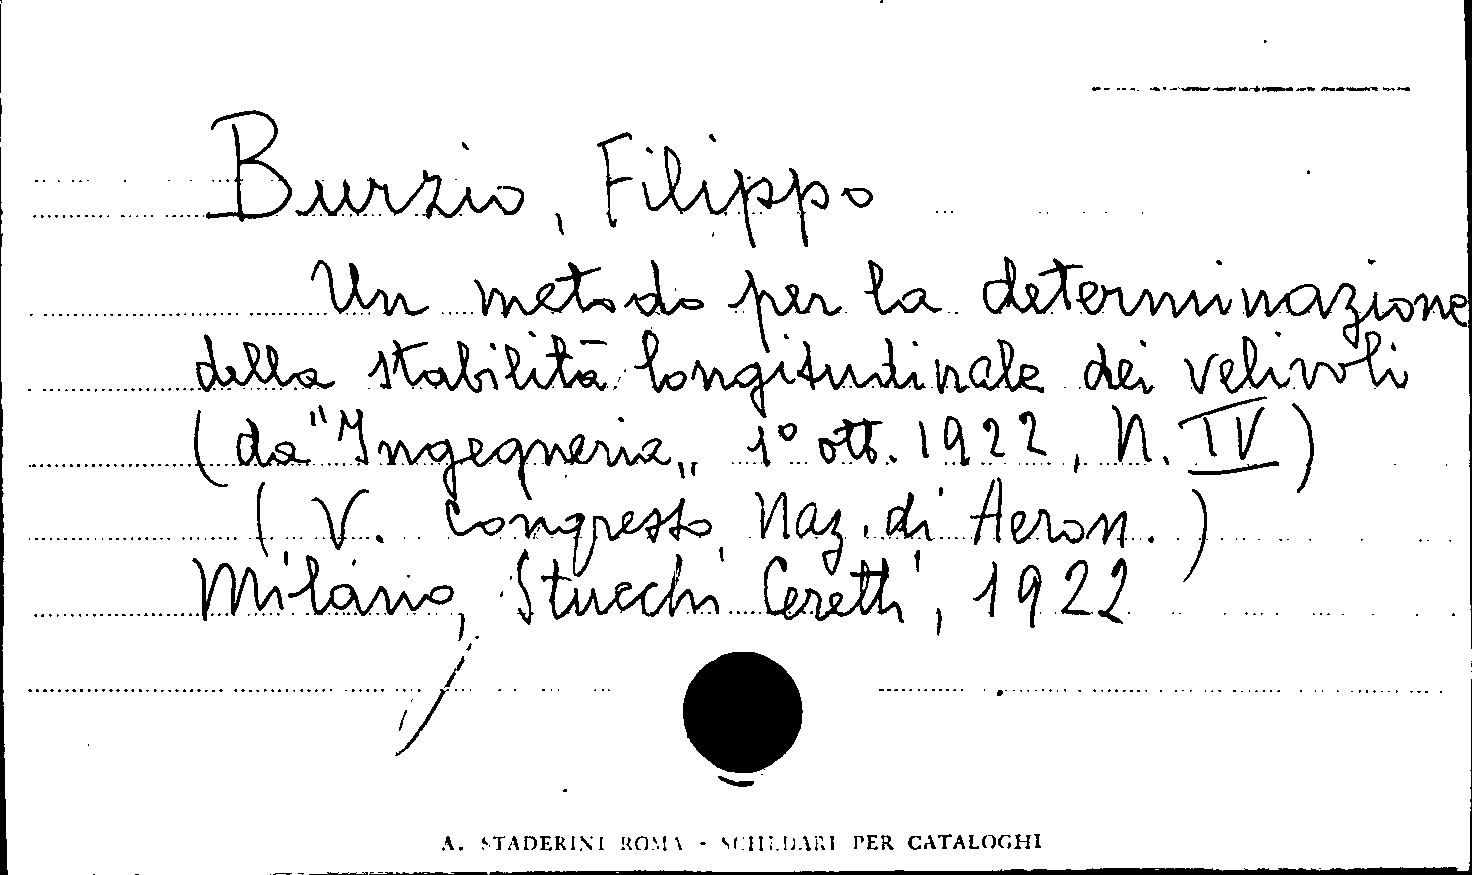 Burzio, Filippo
Un metodo per la determinazione
della stabilità longitudinale dei velivoli
(da "Ingegneria„ 1° ott. 1922, N. IV)
(V. Congresso Naz. di Aeron.)
Milano, Stucchi Ceretti, 1922
A. STADERINI ROMA - SCHEDARI PER CATALOGHI